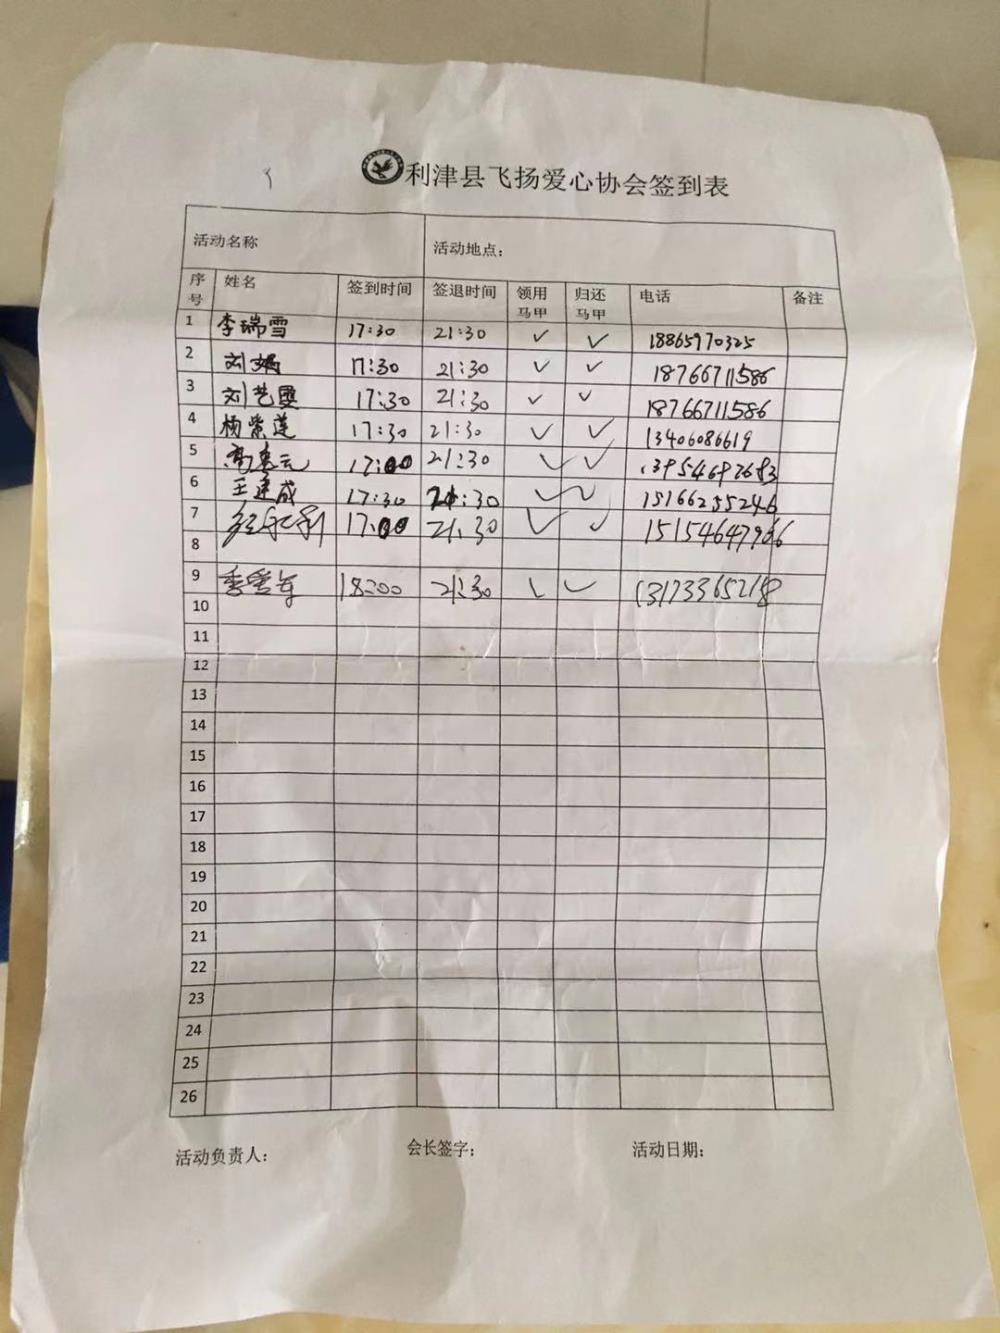 利津县飞扬爱心协会签到表
活动名称 活动地点：
序号 姓名 签到时间 签退时间 领用马甲 归还马甲 电话 备注
1 李瑞雪 17:30 21:30 ✓ ✓ 18865970325
2 刘娟 17:30 21:30 ✓ ✓ 18766711586
3 刘艺雯 17:30 21:30 ✓ ✓ 18766711586
4 杨紫莲 17:30 21:30 ✓ ✓ 13406086619
5 17:00 21:30 ✓ ✓ 13954692683
6 王建成 17:30 21:30 ✓ ✓ 15166255246
7 17:00 21:30 ✓ ✓ 15154647966
8
9 季爱军 18:00 21:30 ✓ ✓ 13173365218
10
11
12
13
14
15
16
17
18
19
20
21
22
23
24
25
26
活动负责人： 会长签字： 活动日期：